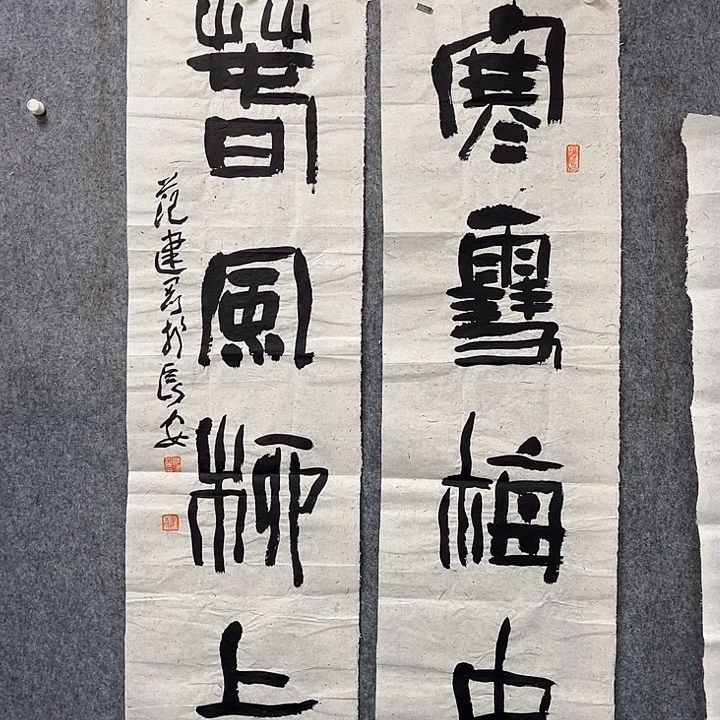 寒雪梅中
春風柳上
范建昌於長安